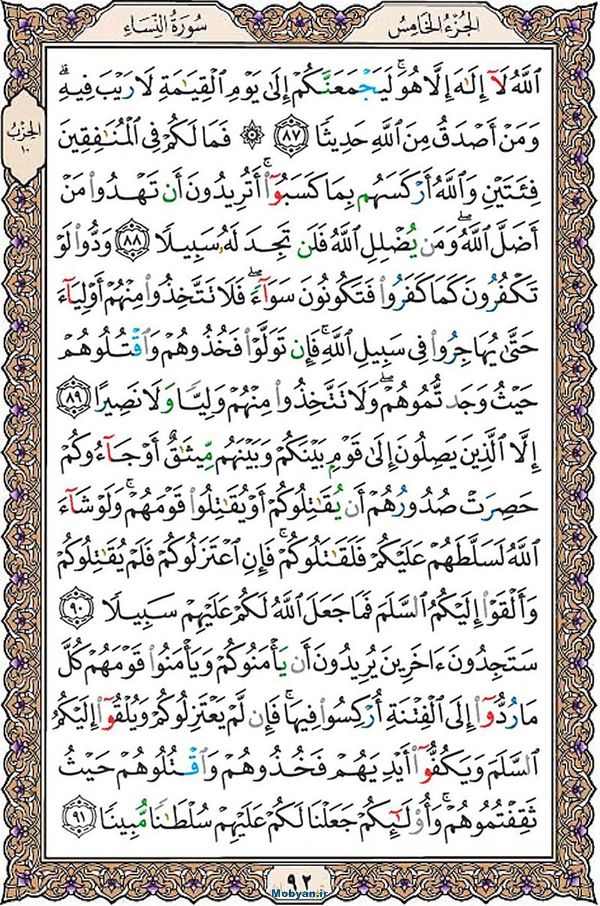 سُورَةُ النِّسَاءِ
الجُزءُ الخَامِسُ
الحِزبُ
١٠
اللَّهُ لَآ إِلَٰهَ إِلَّا هُوَ ۚ لَيَجْمَعَنَّكُمْ إِلَىٰ يَوْمِ الْقِيَٰمَةِ لَا رَيْبَ فِيهِ ۗ
وَمَنْ أَصْدَقُ مِنَ اللَّهِ حَدِيثًا ﴿٨٧﴾ ۞ فَمَا لَكُمْ فِى الْمُنَٰفِقِينَ
فِئَتَيْنِ وَاللَّهُ أَرْكَسَهُم بِمَا كَسَبُوٓا۟ ۚ أَتُرِيدُونَ أَن تَهْدُوا۟ مَنْ
أَضَلَّ اللَّهُ ۖ وَمَن يُضْلِلِ اللَّهُ فَلَن تَجِدَ لَهُۥ سَبِيلًا ﴿٨٨﴾ وَدُّوا۟ لَوْ
تَكْفُرُونَ كَمَا كَفَرُوا۟ فَتَكُونُونَ سَوَآءً ۖ فَلَا تَتَّخِذُوا۟ مِنْهُمْ أَوْلِيَآءَ
حَتَّىٰ يُهَاجِرُوا۟ فِى سَبِيلِ اللَّهِ ۚ فَإِن تَوَلَّوْا۟ فَخُذُوهُمْ وَاقْتُلُوهُمْ
حَيْثُ وَجَدتُّمُوهُمْ ۖ وَلَا تَتَّخِذُوا۟ مِنْهُمْ وَلِيًّا وَلَا نَصِيرًا ﴿٨٩﴾
إِلَّا الَّذِينَ يَصِلُونَ إِلَىٰ قَوْمٍۭ بَيْنَكُمْ وَبَيْنَهُم مِّيثَٰقٌ أَوْ جَآءُوكُمْ
حَصِرَتْ صُدُورُهُمْ أَن يُقَٰتِلُوكُمْ أَوْ يُقَٰتِلُوا۟ قَوْمَهُمْ ۚ وَلَوْ شَآءَ
اللَّهُ لَسَلَّطَهُمْ عَلَيْكُمْ فَلَقَٰتَلُوكُمْ ۚ فَإِنِ اعْتَزَلُوكُمْ فَلَمْ يُقَٰتِلُوكُمْ
وَأَلْقَوْا۟ إِلَيْكُمُ السَّلَمَ فَمَا جَعَلَ اللَّهُ لَكُمْ عَلَيْهِمْ سَبِيلًا ﴿٩٠﴾
سَتَجِدُونَ ءَاخَرِينَ يُرِيدُونَ أَن يَأْمَنُوكُمْ وَيَأْمَنُوا۟ قَوْمَهُمْ كُلَّ
مَا رُدُّوٓا۟ إِلَى الْفِتْنَةِ أُرْكِسُوا۟ فِيهَا ۚ فَإِن لَّمْ يَعْتَزِلُوكُمْ وَيُلْقُوٓا۟ إِلَيْكُمُ
السَّلَمَ وَيَكُفُّوٓا۟ أَيْدِيَهُمْ فَخُذُوهُمْ وَاقْتُلُوهُمْ حَيْثُ
ثَقِفْتُمُوهُمْ ۚ وَأُو۟لَٰٓئِكُمْ جَعَلْنَا لَكُمْ عَلَيْهِمْ سُلْطَٰنًا مُّبِينًا ﴿٩١﴾
٩٢
Mobyan.ir